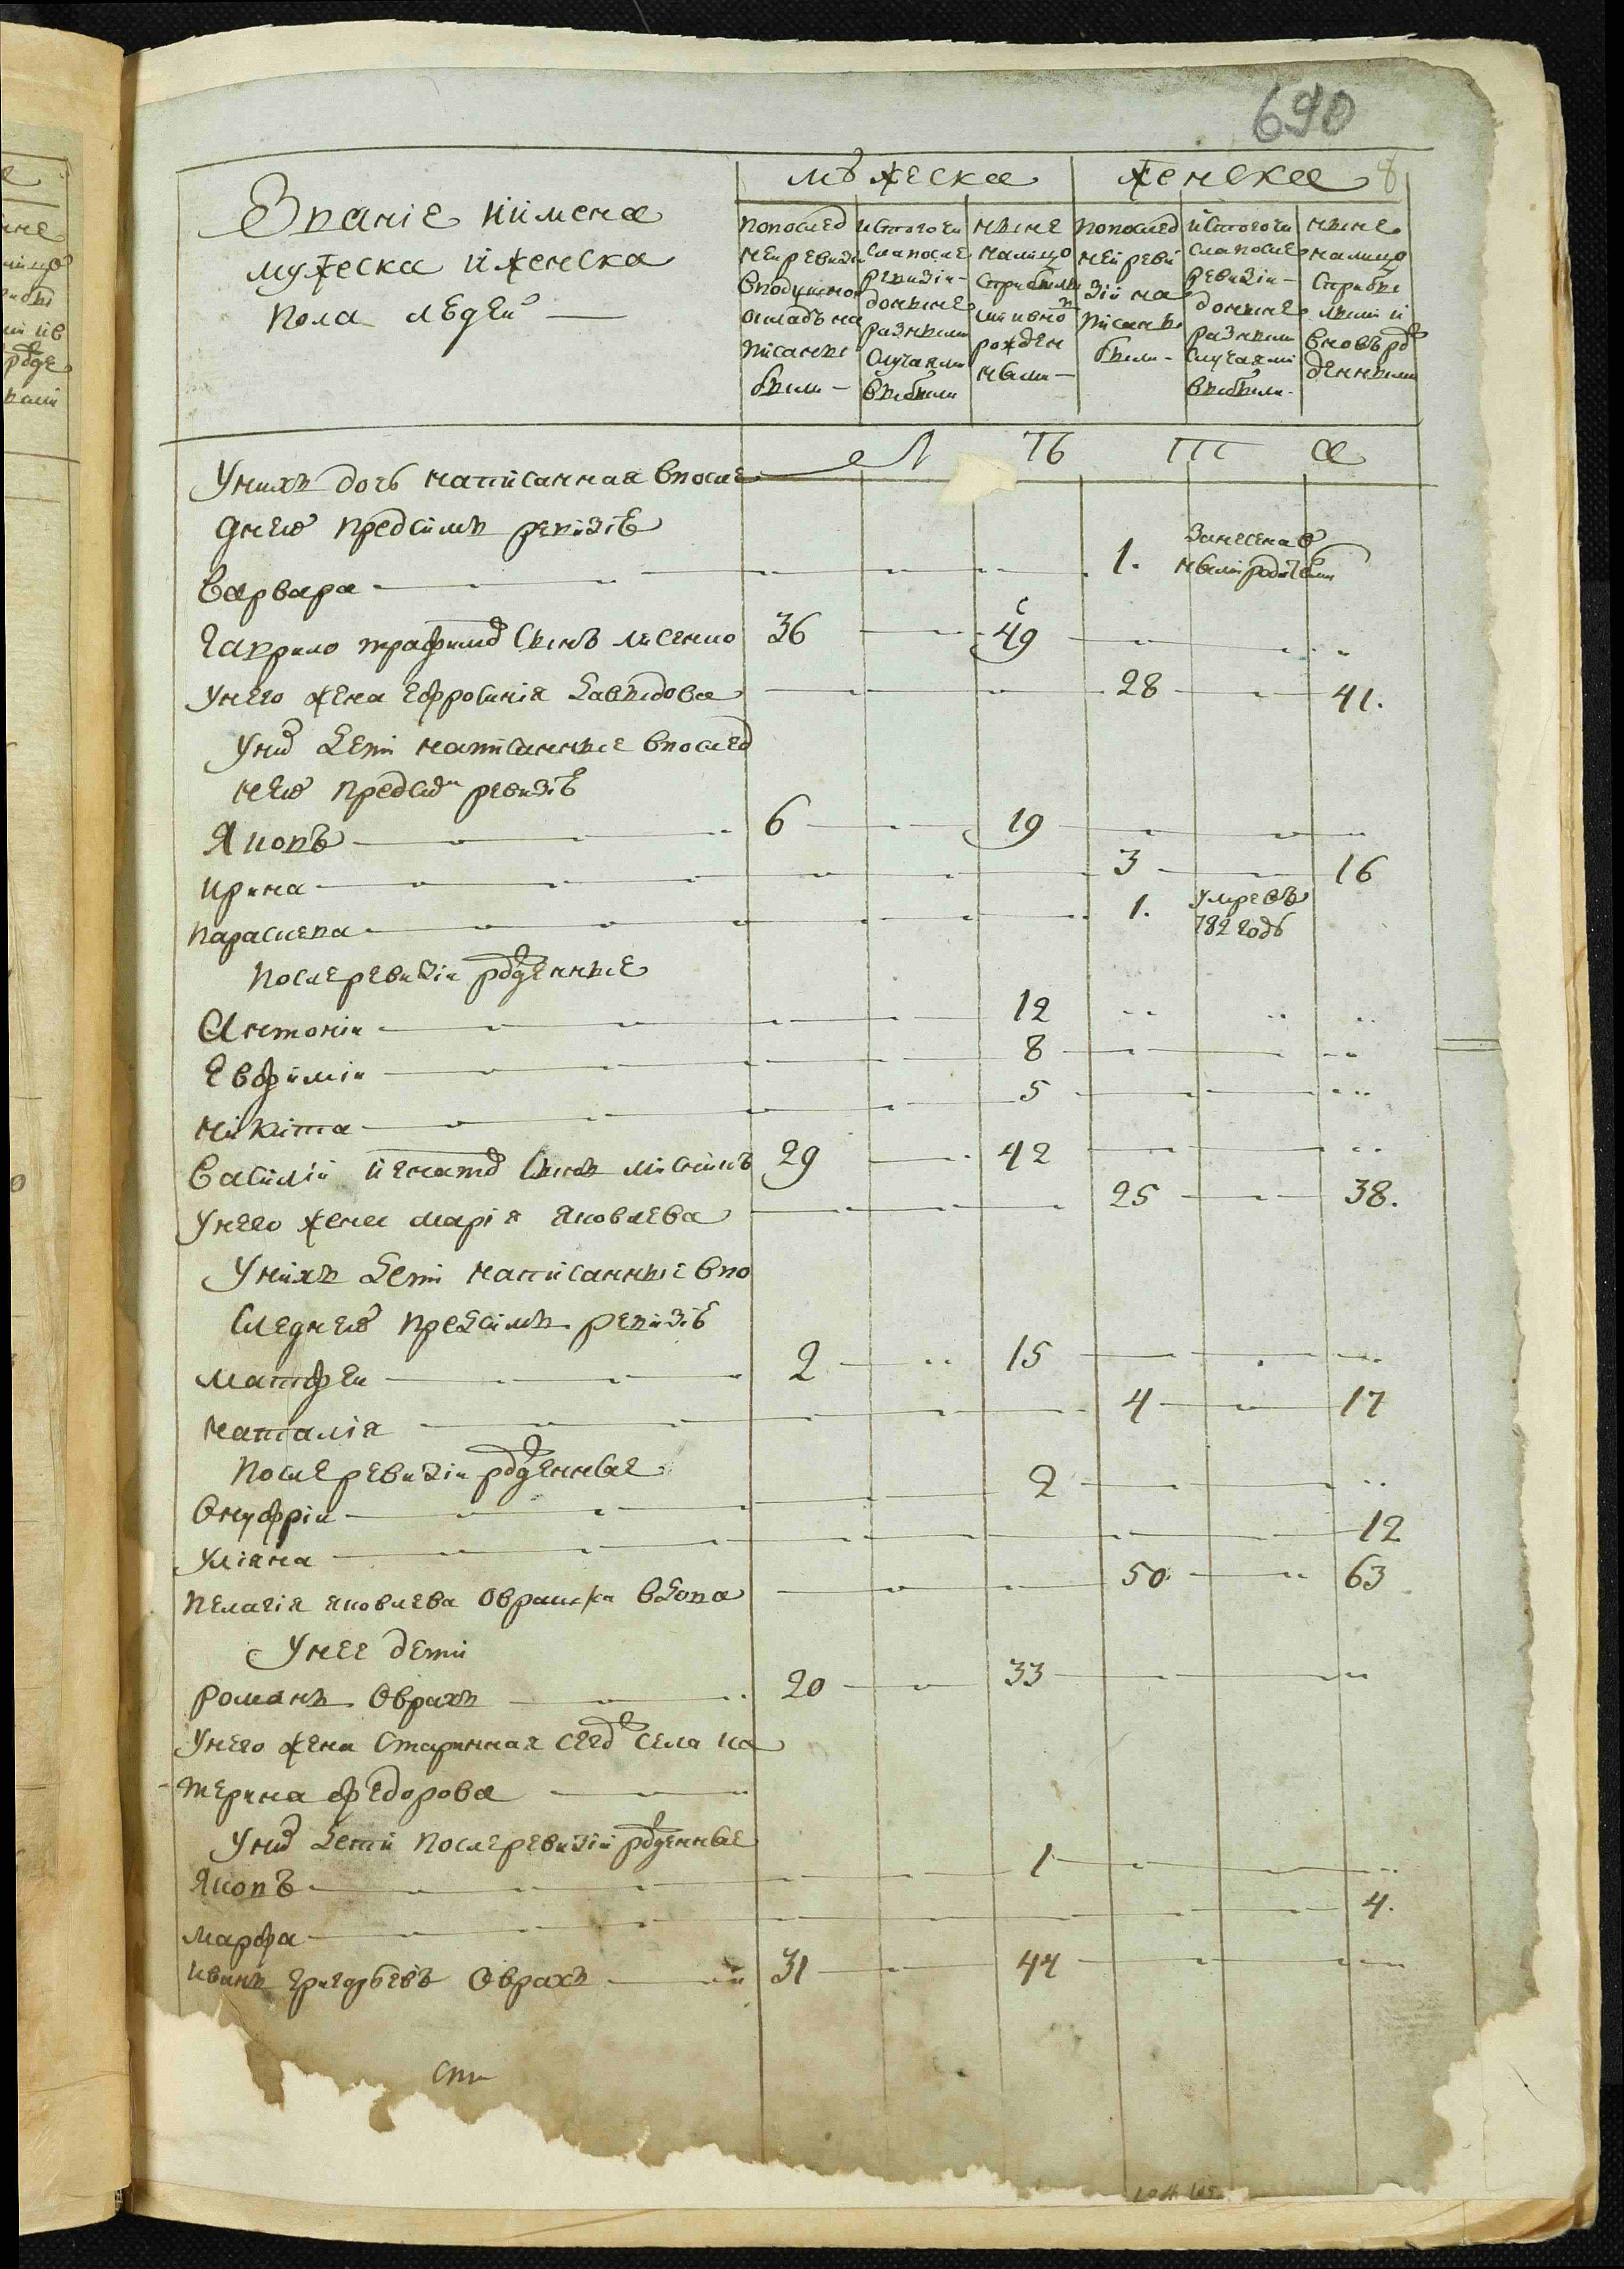 690
8
Званіе иимена
мужеска иженска
пола людей
мужеска
женска
попослед
ней ревизи
вподушном
окладъ на
писаны
были
истого чи
сла после
ревизіи
доныне
разными
случаями
выбыли
ныне
налицо
сприбылы
ми ивно
рожден
ными
попослед
ней реви
зіи на
писаны
были
истого чи
сла после
ревизіи
доныне
разными
случаями
выбыли
ныне
налицо
сприбы
лыми и
вновъ рож
денными
Л Ѣ Т а
Унихъ дочь написанная впосле
днею предсимъ ревизію
Варвара 1. занесена в
Гаврило трафимов сынъ лисенко 36 49
унего жена Ефросинія Давыдова 28 41.
Уних дети написанные впослед
нею предсим ревизію
Яковъ 6 19
ирина 3 16
параскева 1. умре въ
782 годѣ
После ревизіи рожденные
Антоніи 12
Евфиміи 8
никита 5
Василій игнатов сынъ 29 42
унего жена марія яковлева 25 38.
Унихъ дети написанные впо
следнею предсимъ ревизію
матфеи 2 15
наталія 4 17
После ревизіи рожденные
Онуфріи 2
уліяна 12
пелагія яковлева вдова 50 63
Унее дети
романъ Оврахъ 20 33
Унего жена Старинная сего села ка
терина федорова
Уних дети после ревизіи рожденные
Яковъ 1
марфа 4.
иванъ григорьевъ Оврахъ 31 44